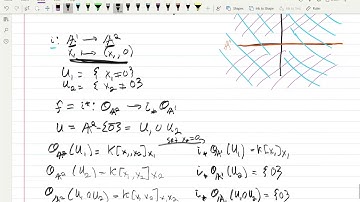 i: A¹ → A²
x₁ ↦ (x₁, 0)
U₁ = { x₁ ≠ 0 }
U₂ = { x₂ ≠ 0 }
f = i*: O_A² → i_* O_A¹
U = A² - {0} = U₁ ∪ U₂
set x₂=0
O_A² (U₁) = K[x₁, x₂]_x₁ i_* O_A¹ (U₁) = K[x₁]_x₁
O_A² (U₂) = K[x₁, x₂]_x₂ i_* O_A¹ (U₂) = {0}
O_A² (U₁∩U₂) = K[x₁, x₂]_x₁x₂ i_* O_A¹ (U₁∩U₂) = {0}